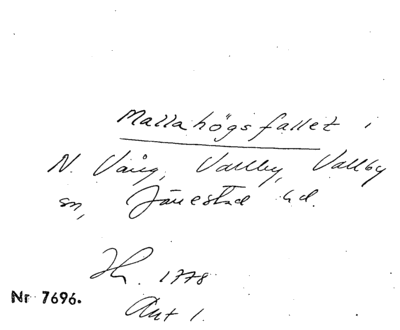 Mallahögsfallet i
N. Vång, Vallby, Vallby
sn, Järrestad hd.
Jh. 1778
Nr 7696.
Akt 1.